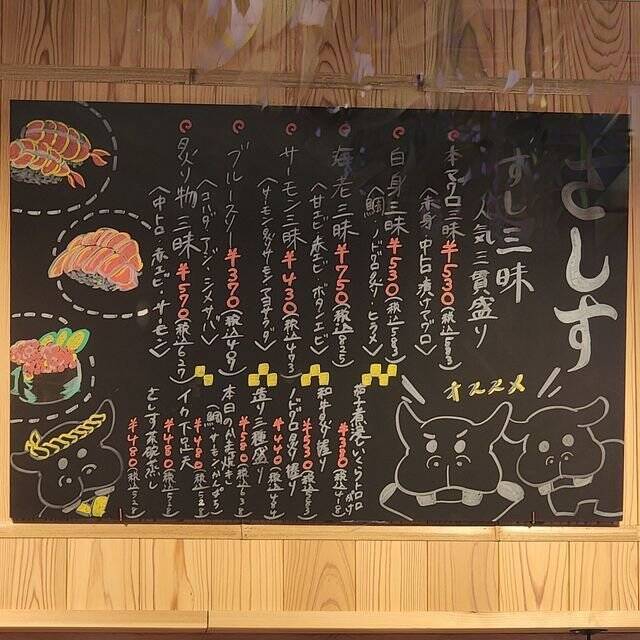 さしす
すし三昧
人気三貫盛り
本マグロ三昧 ¥530(税込583)
〈赤身 中トロ 漬けマグロ〉
白身三昧 ¥530(税込583)
〈鯛 ノドグロ炙り ヒラメ〉
海老三昧 ¥750(税込825)
〈甘エビ 赤エビ ボタンエビ〉
サーモン三昧 ¥430(税込473)
〈サーモン 炙りサーモンマヨ
ブルースリー ¥370(税込409
〈コハダ・アジ・シメサバ〉
炙り物三昧 ¥570(税込627)
〈中トロ・赤エビ・サーモン〉
オススメ
いくらトロロ
¥380(税込418
和牛炙り握り
¥530(税込583
ノドグロ炙り握り
¥440(税込484
造り三種盛り
¥580(税込638
本日のAら煮焼き
〈鯛・サーモン・かんぱち〉
¥480(税込528
イカ下足天
¥480(税込528
さしす茶碗蒸し
¥480(税込528